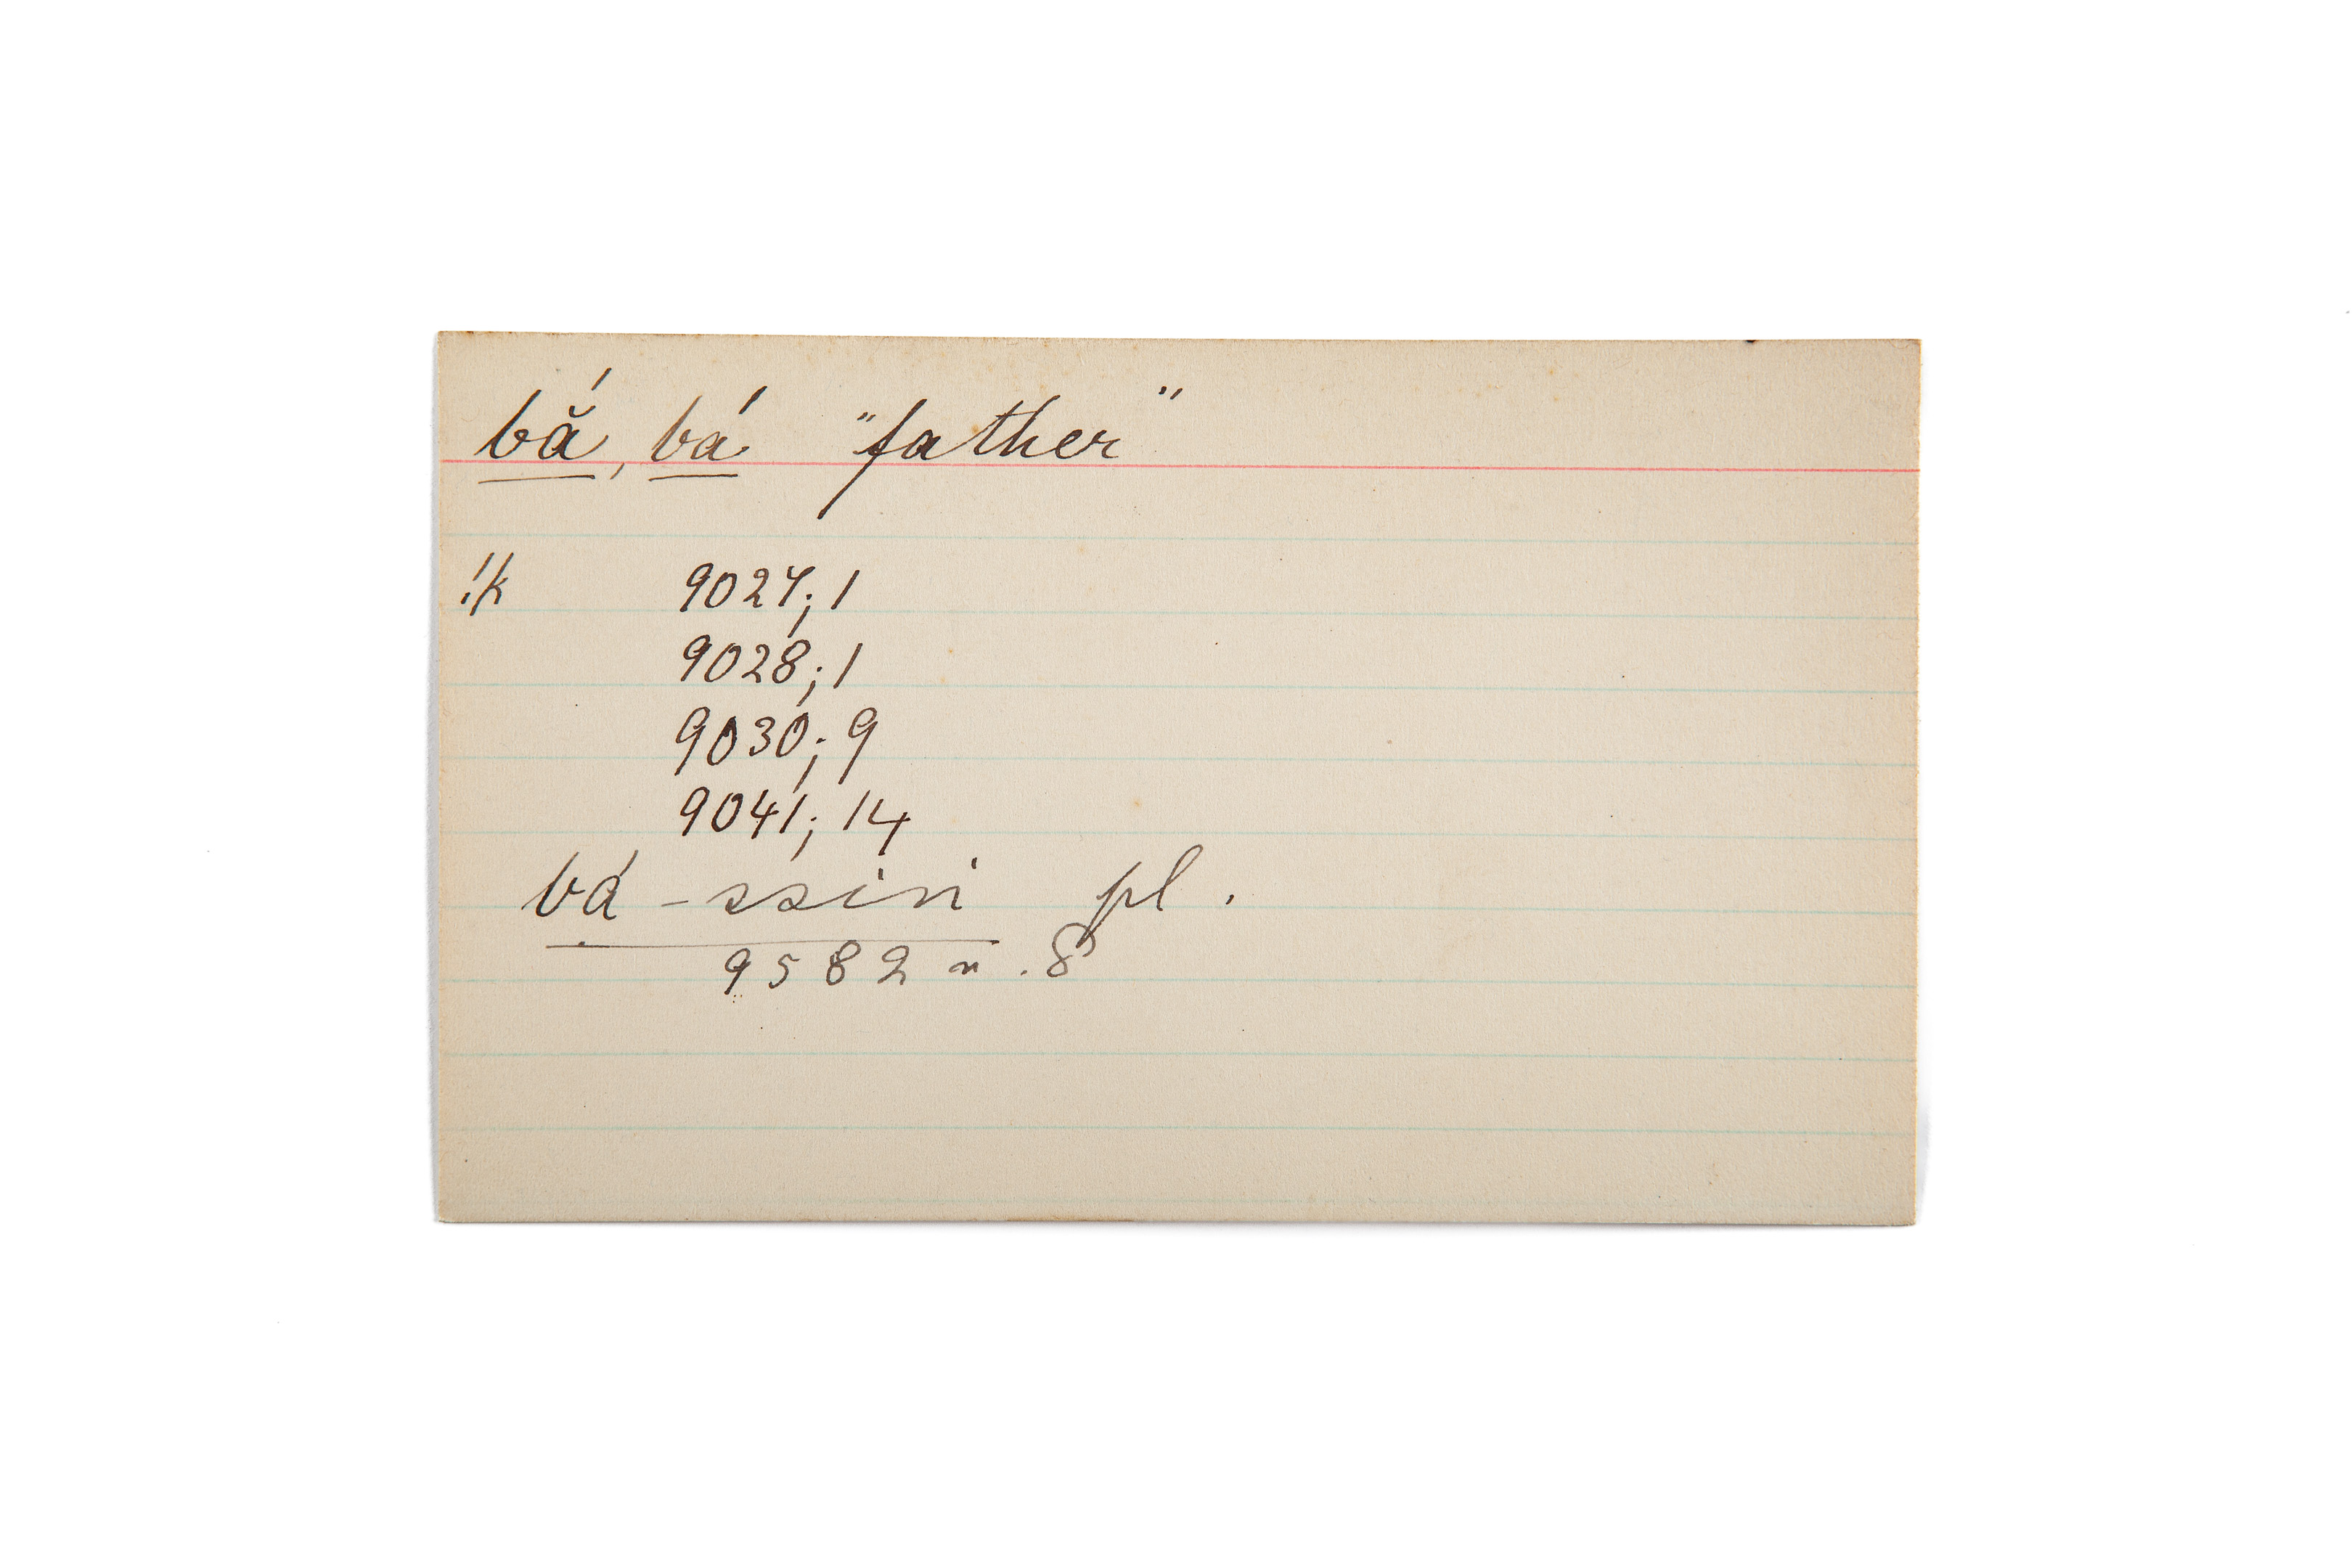 bắ, bá "father"
!k 9027; 1
9028; 1
9030; 9
9041; 14
bá-ssin pl.
9582 n. 8